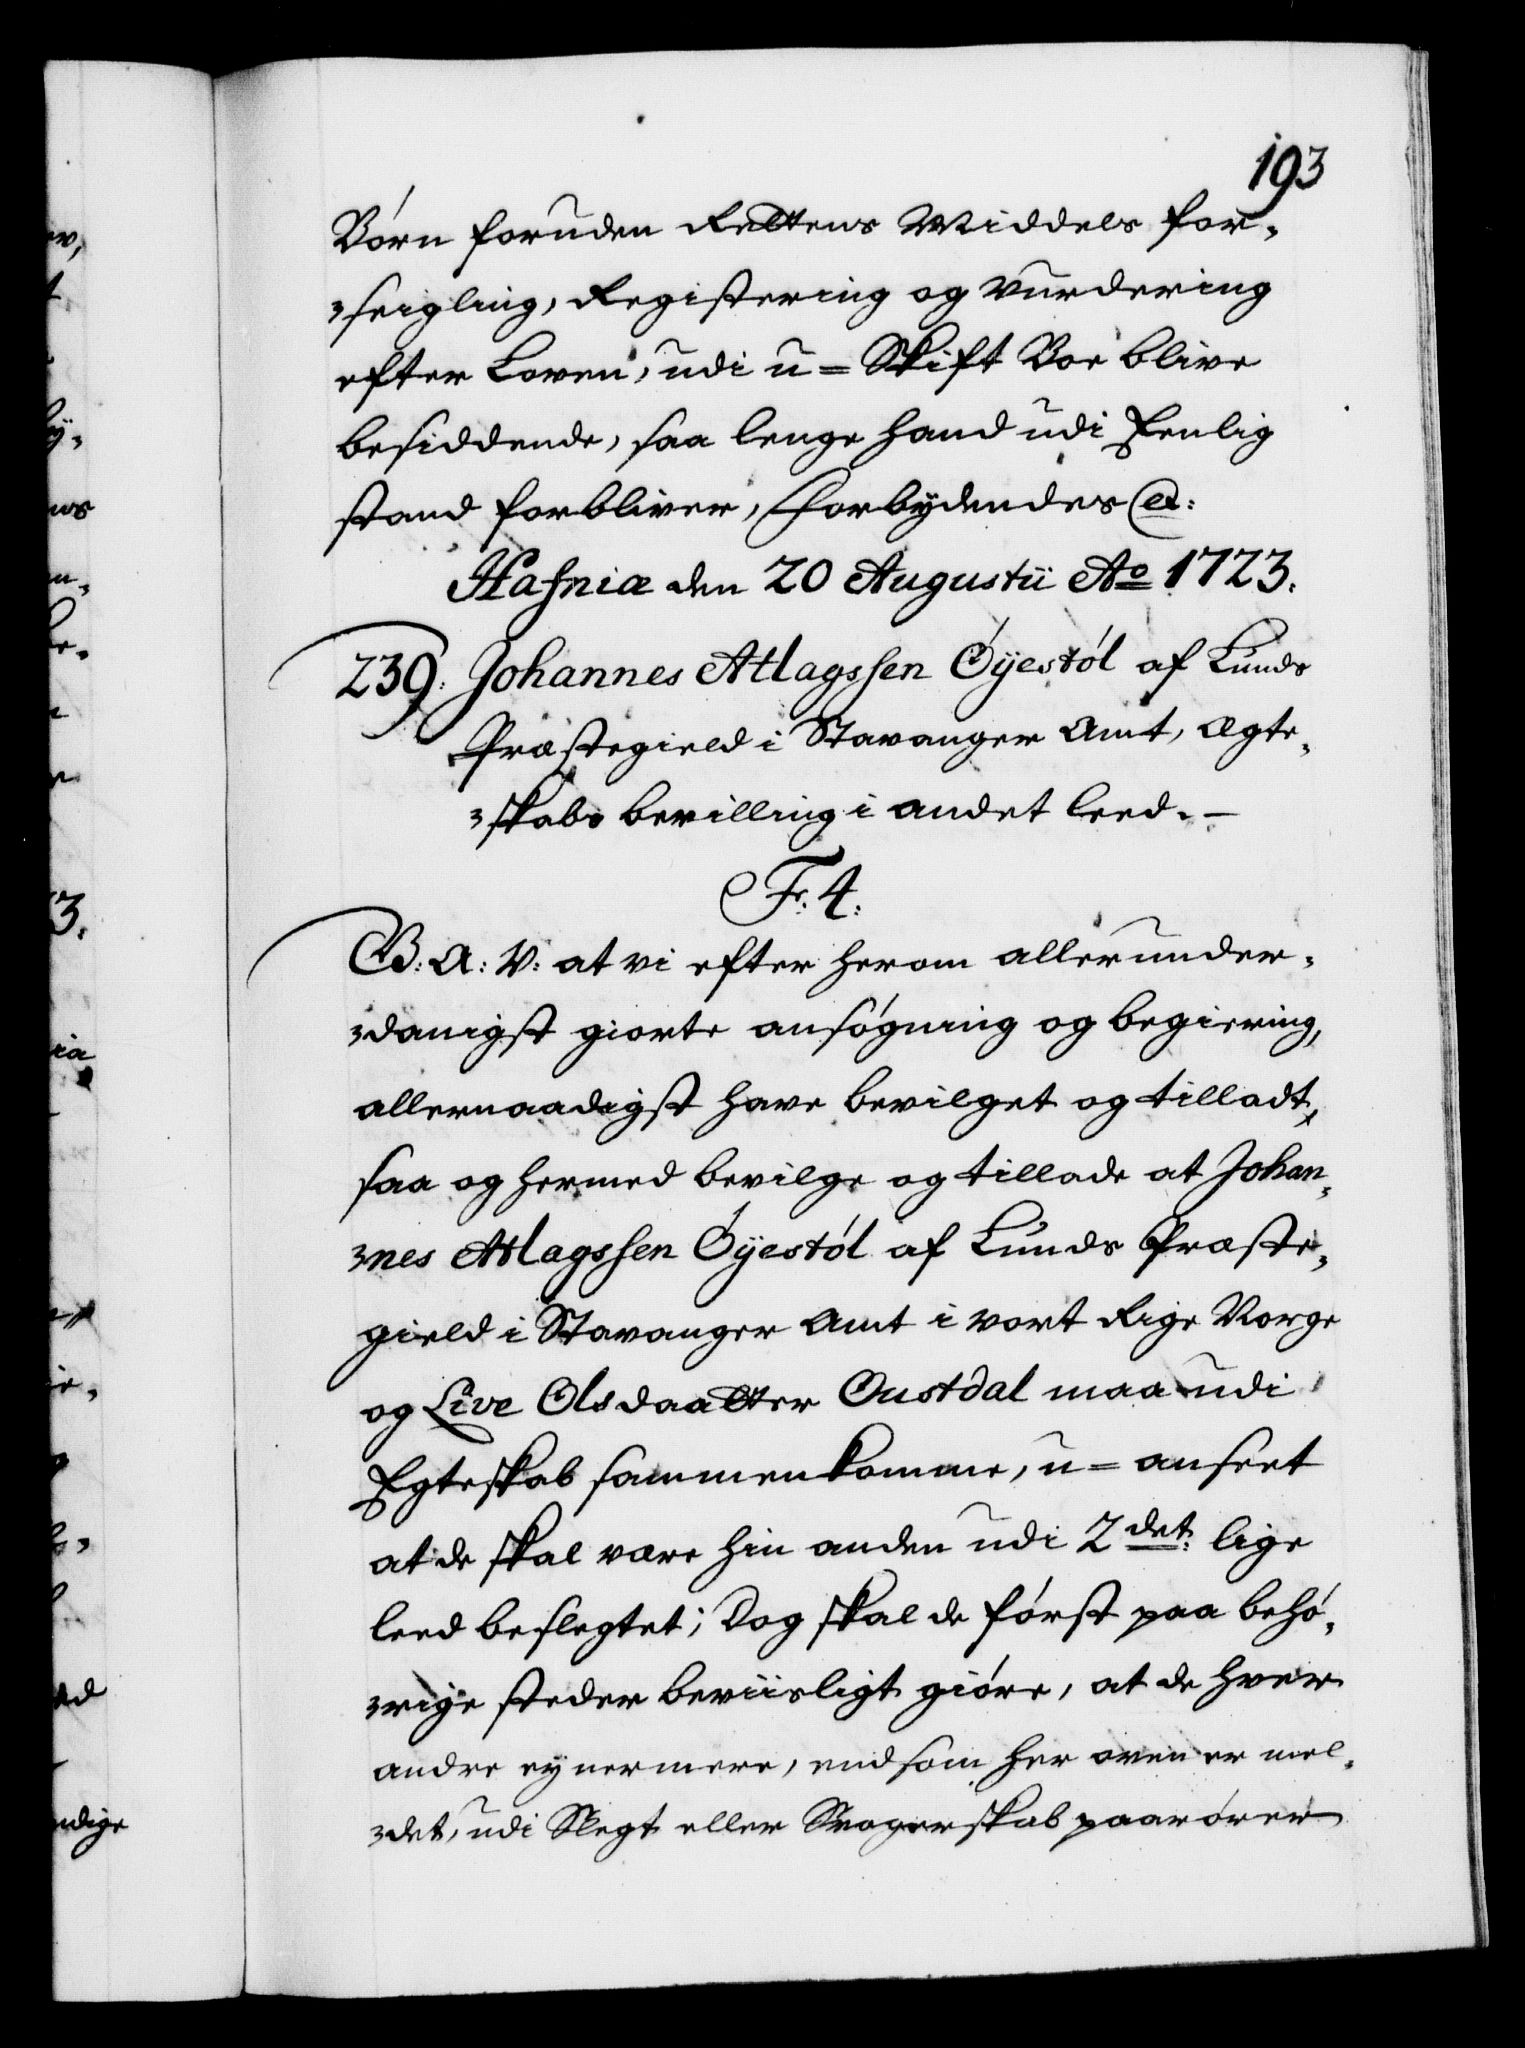 193
Børn foruden Rettens Middels for-
seigling, Registering og Vurdering
efter Loven, udi u=Skift Boe blive
besiddende, saa lenge hand udi Eenlig
stand forbliver, Forbydendes etc:
Hafniæ den 20 Augustii Ao 1723.
239. Johannes Atlagssen Óÿestól af Lunds
Præstegield i Stavanger Amt, Ægte-
skabs bevilling i andet leed.-
Fr. 4:
G: A: V: at vi efter herom allerunder-
danigst giorte ansøgning og begiering,
allernaadigst have bevilget og tilladt,
saa og hermed bevilge og tillade at Johan-
nes Atlagssen Óÿestól af Lunds Præste-
gield i Stavanger Amt i vort Rige Norge
og Live Olsdaatter Oustdal maa udi
Egteskab sammenkomme, u=anseet
at de skal være hin anden udi 2det: lige
leed beslegtet; Dog skal de först paa behø-
rige steder beviisligt giøre, at de hver
andre ey nermere, end som her oven er mel-
det, udi Slegt eller Svogerskab paarører